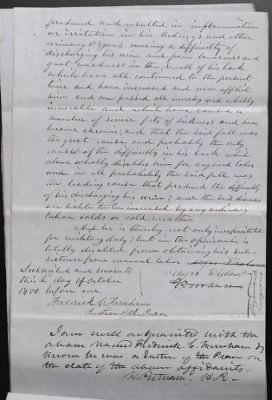 produced and resulted in inflammation
or irritation in his Kidneys and other
urinary organs, causing a difficulty of
discharging his urin and pain tenderness and
great weakness in the small of his back
which have all continued to the present
time and have increased and now afflict
him and are passed all remedy and wholly
incurable and which have caused a
number of severe fits of sickness and has
become chronic; and that the said fall was
the great cause and probably the only
cause of the difficulty in his back which
alone wholly disables him for any and labor
and in all probability the said fall was
the leading cause that produced the difficulty
of his discharging his urine; and the said disease
is liable to be increased by any ordinary
labor colds or cold weather
And he is thereby not only incapacitated
for military duty, but in the opinion he is
totally disabled from obtaining his sub-
sistence from manual labor
Subscribed and sworn to
this day of October
1850 before me
Frederick C. Farnham
Justice of the Peace
I am well acquainted with the
above named Frederick C. Farnham &
know he was a Justice of the Peace on
the date of the above affidavits.
H. Putnam,